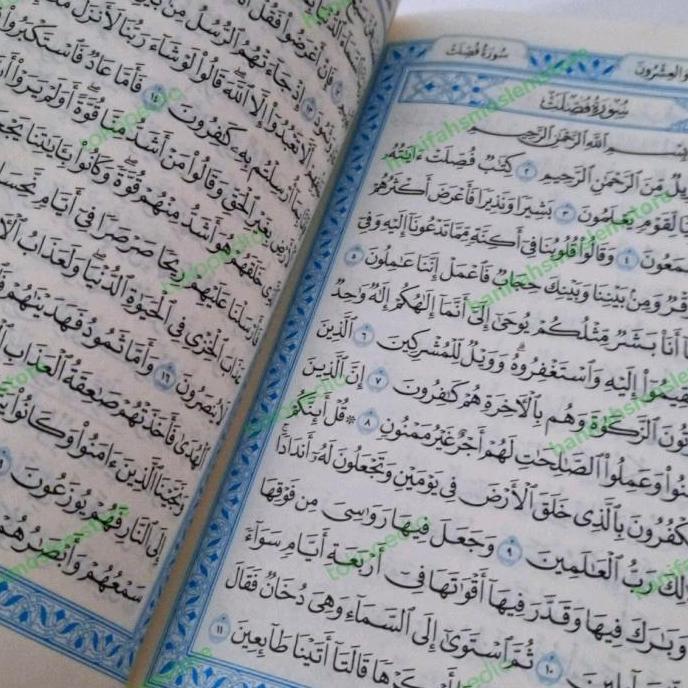 سُورَةُ فُصِّلَتْ
سُورَةُ فُصِّلَتْ
ٱللَّهِ ٱلرَّحْمَٰنِ ٱلرَّحِيمِ
مِّنَ ٱلرَّحْمَٰنِ ٱلرَّحِيمِ ٢ كِتَٰبٌ فُصِّلَتْ ءَايَٰتُهُۥ
لِّقَوْمٍ يَعْلَمُونَ ٣ بَشِيرًا وَنَذِيرًا فَأَعْرَضَ أَكْثَرُهُمْ
٤ وَقَالُوا۟ قُلُوبُنَا فِىٓ أَكِنَّةٍ مِّمَّا تَدْعُونَآ إِلَيْهِ وَفِىٓ
وَمِنۢ بَيْنِنَا وَبَيْنِكَ حِجَابٌ فَٱعْمَلْ إِنَّنَا عَٰمِلُونَ ٥
أَنَا۠ بَشَرٌ مِّثْلُكُمْ يُوحَىٰٓ إِلَىَّ أَنَّمَآ إِلَٰهُكُمْ إِلَٰهٌ وَٰحِدٌ
إِلَيْهِ وَٱسْتَغْفِرُوهُ ۗ وَوَيْلٌ لِّلْمُشْرِكِينَ ٦ ٱلَّذِينَ
ٱلزَّكَوٰةَ وَهُم بِٱلْءَاخِرَةِ هُمْ كَٰفِرُونَ ٧ إِنَّ ٱلَّذِينَ
وَعَمِلُوا۟ ٱلصَّٰلِحَٰتِ لَهُمْ أَجْرٌ غَيْرُ مَمْنُونٍ ٨ ۞ قُلْ أَئِنَّكُمْ
بِٱلَّذِى خَلَقَ ٱلْأَرْضَ فِى يَوْمَيْنِ وَتَجْعَلُونَ لَهُۥٓ أَندَادًا ۚ
رَبُّ ٱلْعَٰلَمِينَ ٩ وَجَعَلَ فِيهَا رَوَٰسِىَ مِن فَوْقِهَا
وَبَٰرَكَ فِيهَا وَقَدَّرَ فِيهَآ أَقْوَٰتَهَا فِىٓ أَرْبَعَةِ أَيَّامٍ سَوَآءً
١٠ ثُمَّ ٱسْتَوَىٰٓ إِلَى ٱلسَّمَآءِ وَهِىَ دُخَانٌ فَقَالَ
قَالَتَآ أَتَيْنَا طَآئِعِينَ ١١
فَإِنْ أَعْرَضُوا۟ فَقُلْ
إِذْ جَآءَتْهُمُ ٱلرُّسُلُ مِنۢ
أَلَّا تَعْبُدُوٓا۟ إِلَّا ٱللَّهَ ۖ قَالُوا۟ لَوْ شَآءَ رَبُّنَا لَأَنزَلَ
أُرْسِلْتُم بِهِۦ كَٰفِرُونَ ١٤ فَأَمَّا عَادٌ فَٱسْتَكْبَرُوا۟
بِغَيْرِ ٱلْحَقِّ وَقَالُوا۟ مَنْ أَشَدُّ مِنَّا قُوَّةً ۖ أَوَلَمْ يَرَوْا۟ أَنَّ
خَلَقَهُمْ هُوَ أَشَدُّ مِنْهُمْ قُوَّةً ۖ وَكَانُوا۟ بِـَٔايَٰتِنَا
فَأَرْسَلْنَا عَلَيْهِمْ رِيحًا صَرْصَرًا فِىٓ أَيَّامٍ
عَذَابَ ٱلْخِزْىِ فِى ٱلْحَيَوٰةِ ٱلدُّنْيَا ۖ وَلَعَذَابُ
لَا يُنصَرُونَ ١٦ وَأَمَّا ثَمُودُ فَهَدَيْنَٰهُمْ
ٱلْهُدَىٰ فَأَخَذَتْهُمْ صَٰعِقَةُ ٱلْعَذَابِ
وَنَجَّيْنَا ٱلَّذِينَ ءَامَنُوا۟ وَكَانُوا۟
إِلَى ٱلنَّارِ فَهُمْ يُوزَعُونَ
سَمْعُهُمْ وَأَبْصَٰرُهُمْ